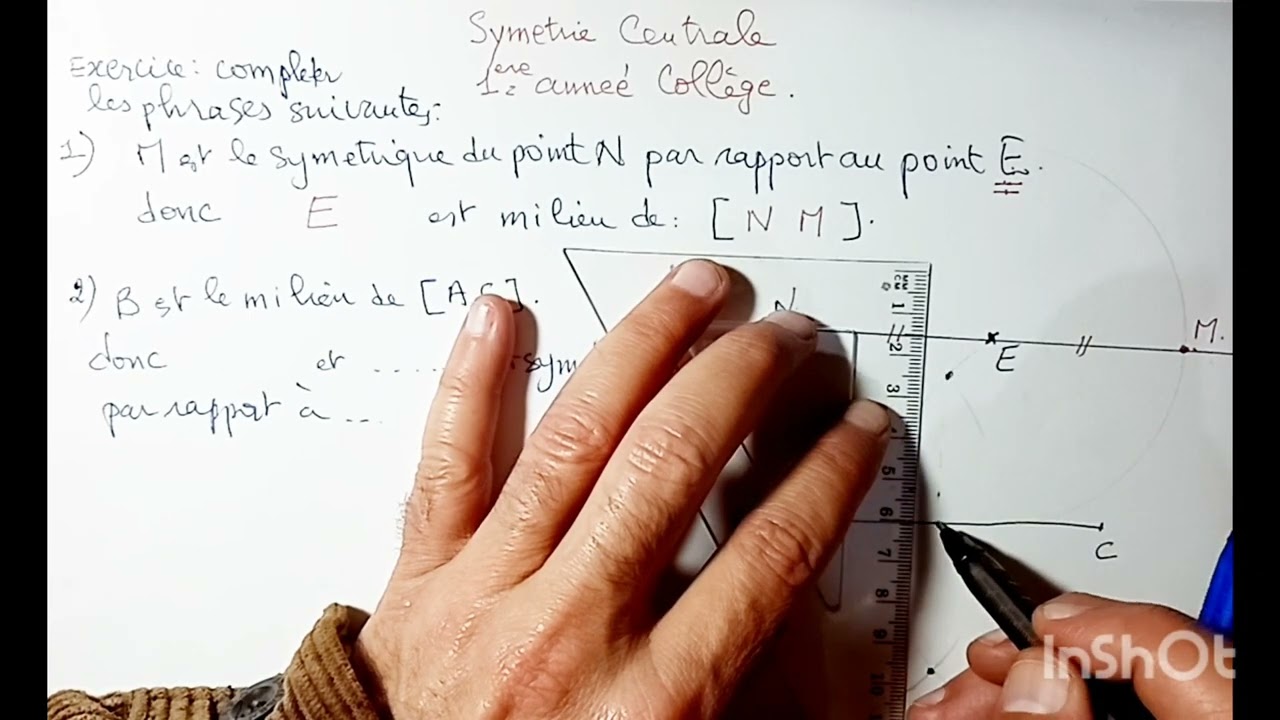 Symetrie Centrale
1ere année Collège.
Exercice: completer
les phrases suivantes:
1) M est le symetrique du point N par rapport au point E.
donc E est milieu de: [N M].
2) B est le milieu de [A C].
donc et ..... sym
par rapport à ...
N
E
M.
C
1
2
3
5
6
7
8
9
10
InShOt